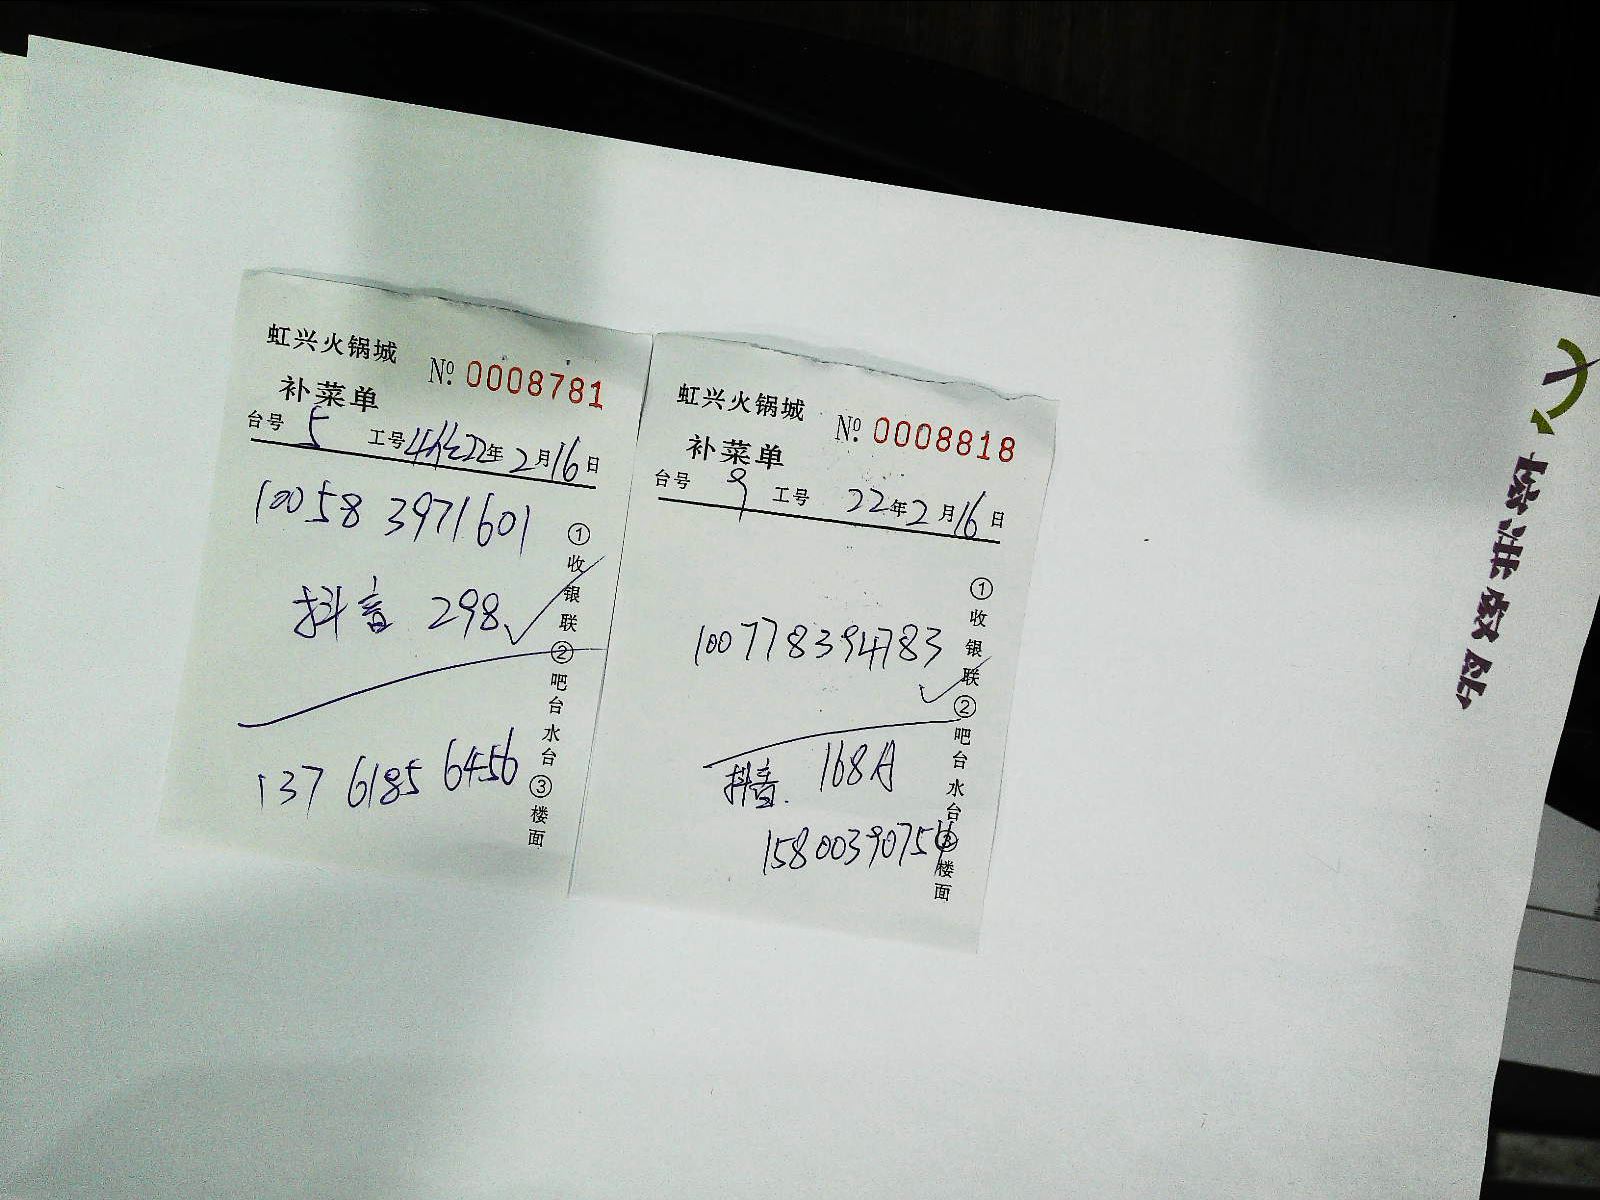 虹兴火锅城
补菜单
№ 0008781
台号 5 工号 22年2月16日
10058 3971601
抖音 298
137 6185 6456
①收银联②吧台水台③楼面
虹兴火锅城
补菜单
№ 0008818
台号 9 工号 22年2月16日
100778394783
抖音. 168A
①收银联②吧台水台③楼面